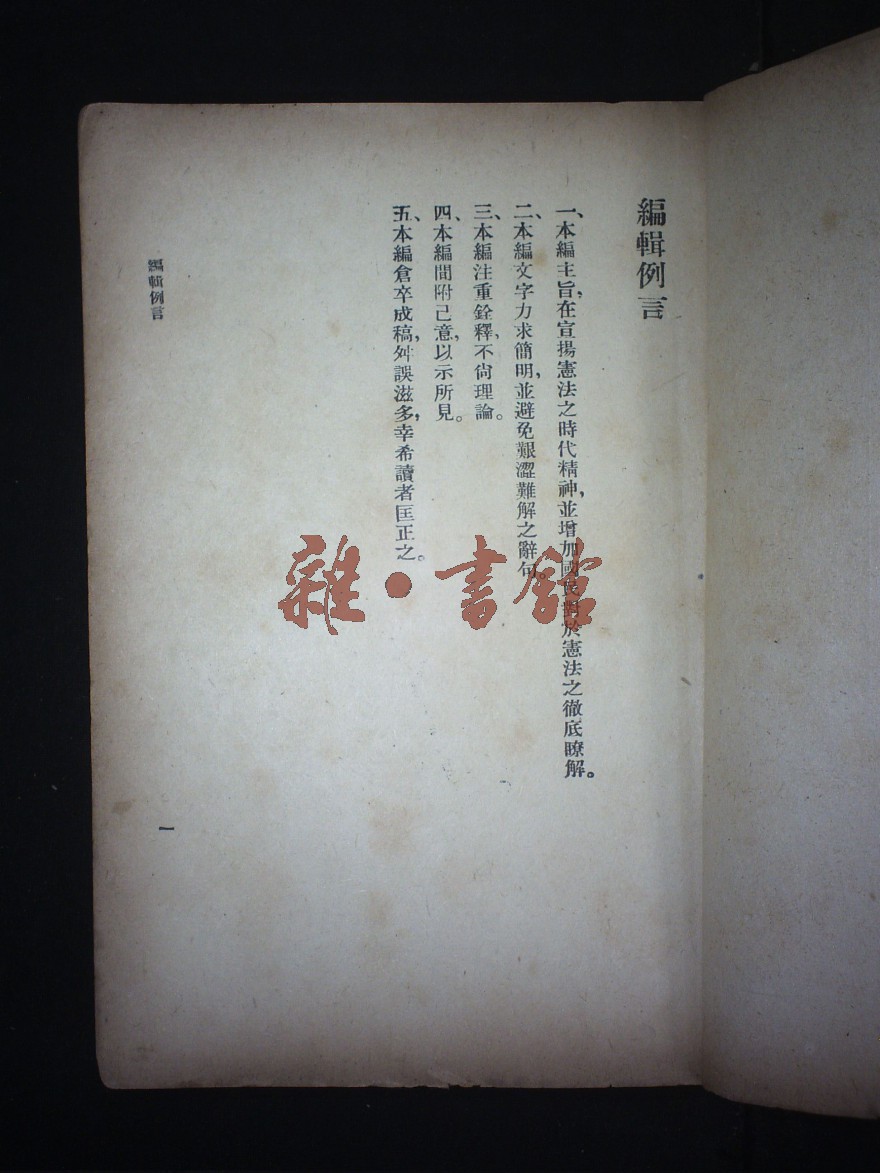 編輯例言
一、本編主旨，在宣揚憲法之時代精神，並增加國民對於憲法之徹底瞭解。
二、本編文字力求簡明，並避免艱澀難解之辭句。
三、本編注重銓釋，不尙理論。
四、本編間附己意，以示所見。
五、本編倉卒成稿，舛誤滋多，幸希讀者匡正之。
編輯例言
一
雜·書館